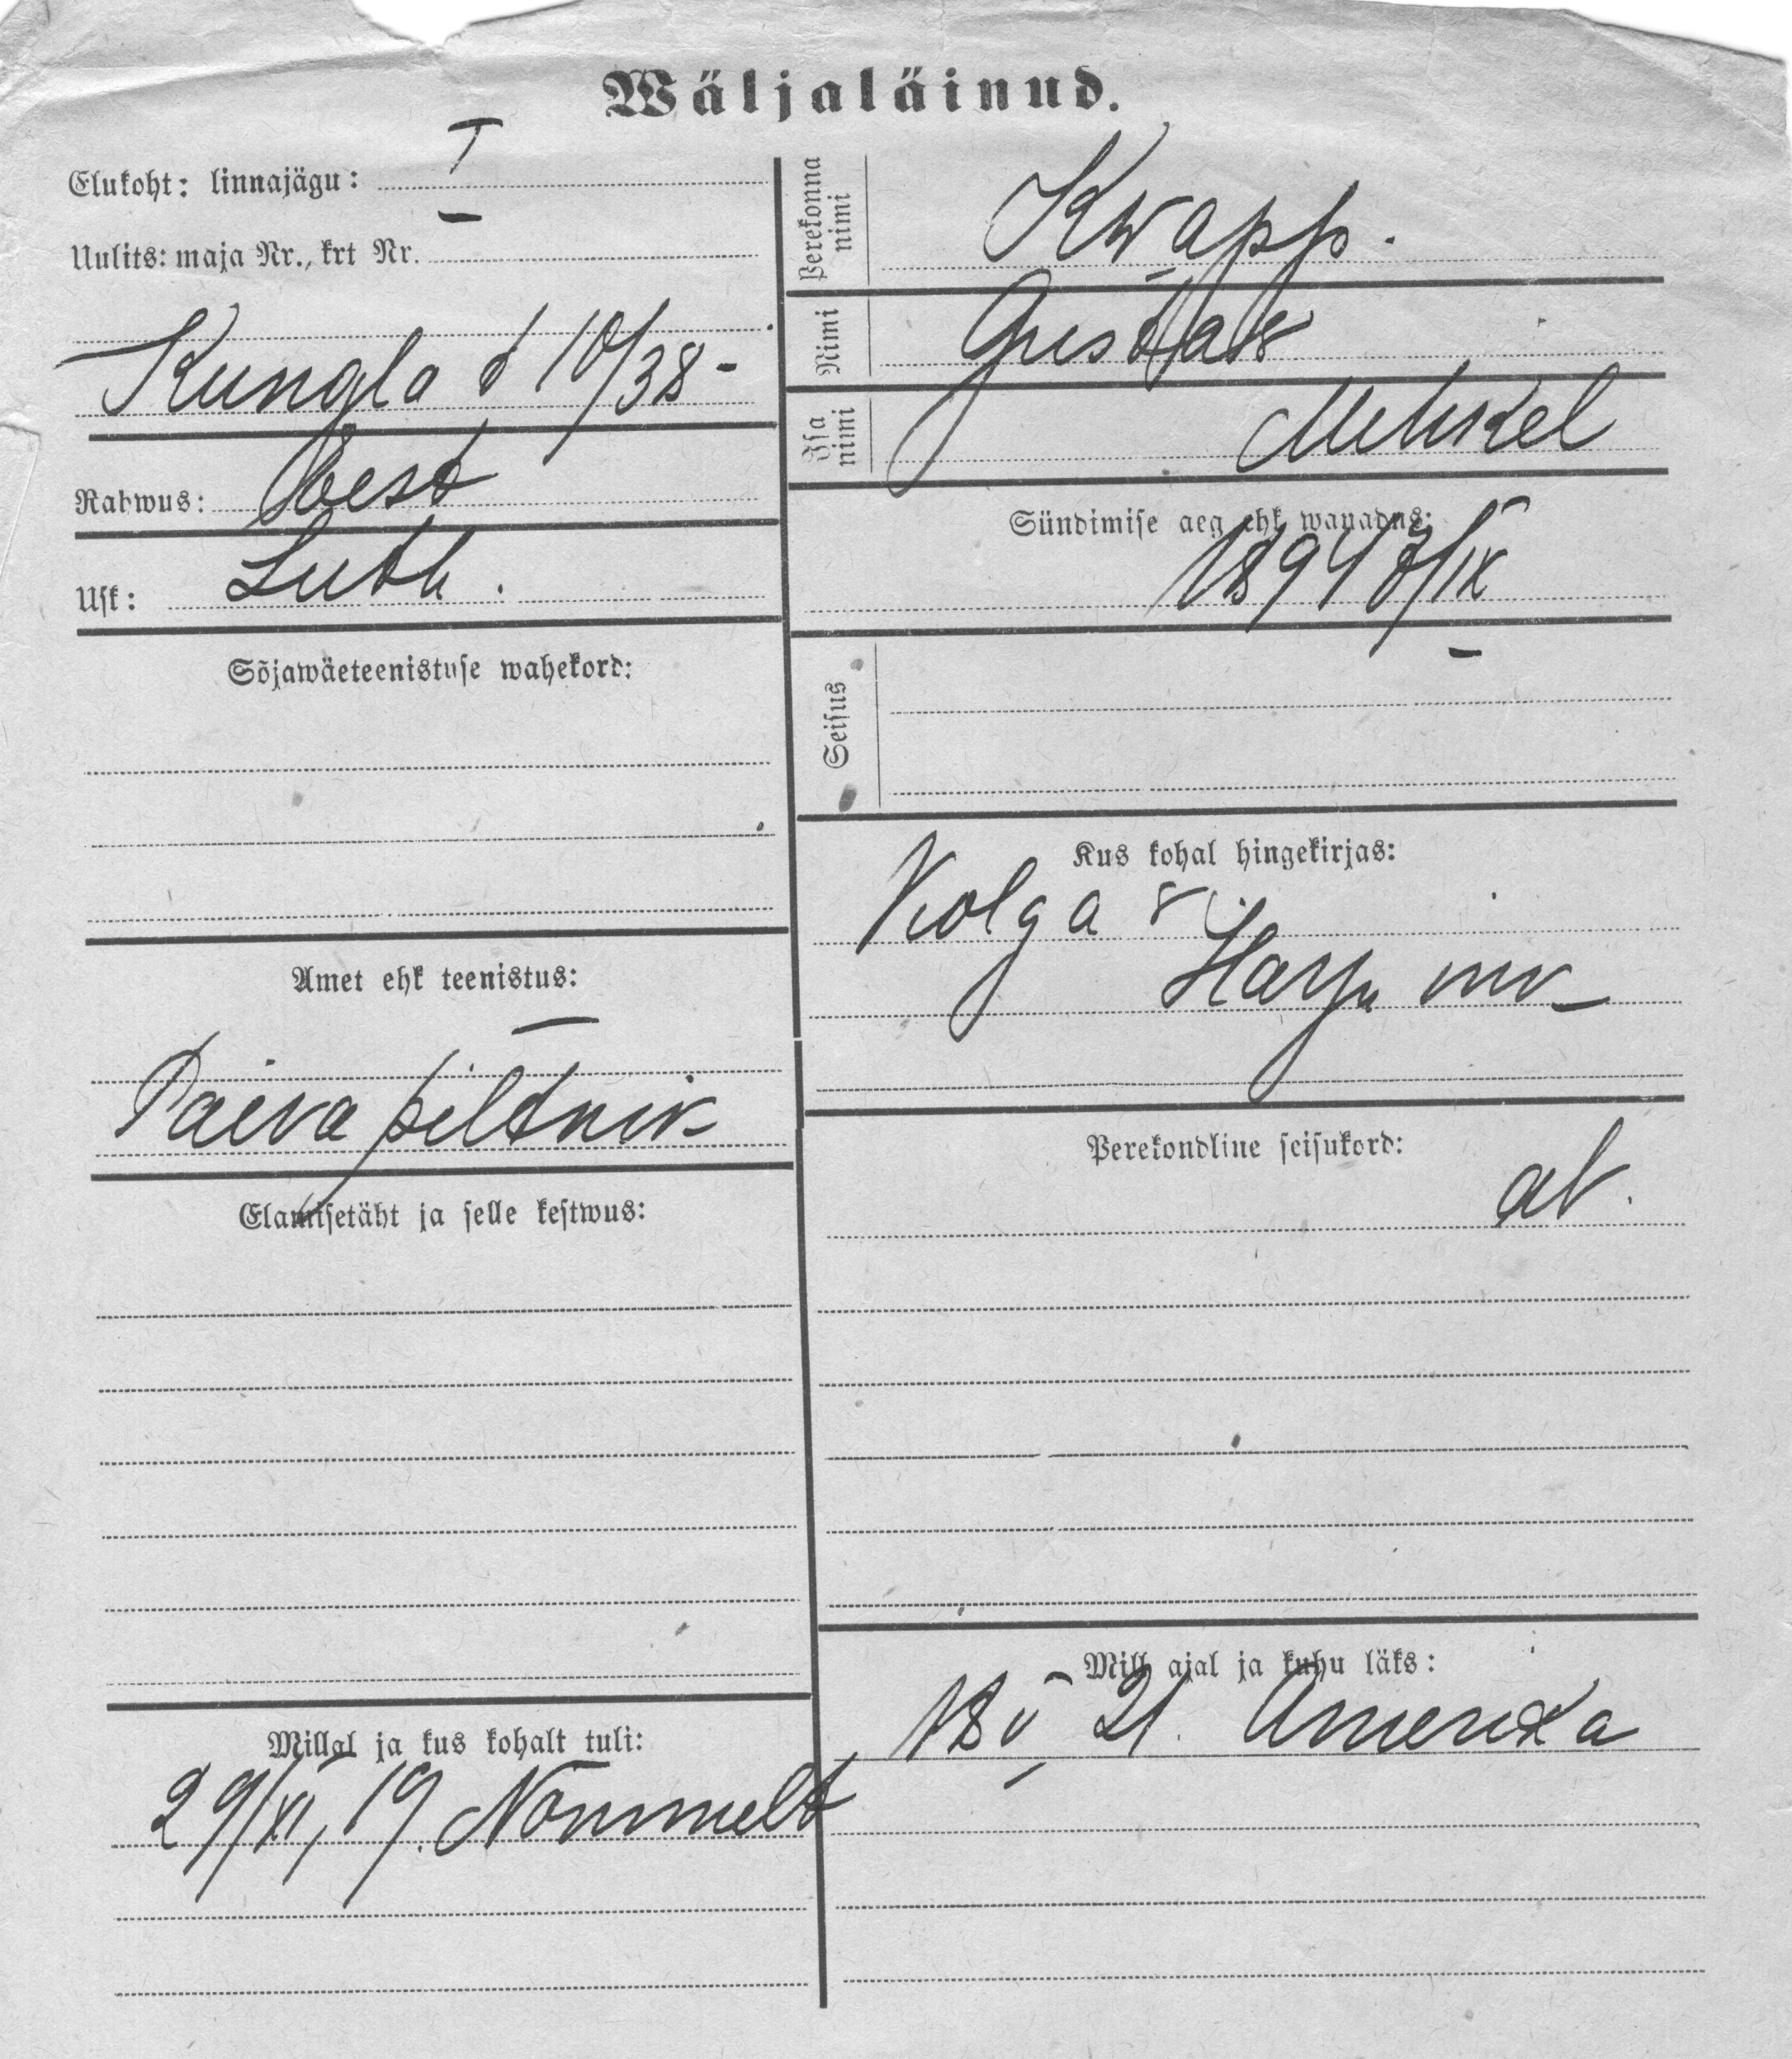 Wäljaläinud.
Elukoht: linnajägu: I
Uulits: maja Nr., krt Nr.
Kungla t 10/38-
Rahwus: Eest
Usk: Luth.
Sõjawäeteenistuse wahekord:
Amet ehk teenistus:
Päevapiltnik
Elamisetäht ja selle kestwus:
Millal ja kus kohalt tuli:
29/XI, 19. Nõmmelt
Perekonna
nimi
Kwapp.
Nimi
Gustav
Isa
nimi
Mihkel
Sündimise aeg ehk wanadus:
1894 7/IX
Seisus
Kus kohal hingekirjas:
Kolga v.
Harju mk
Perekondline seisukord:
ab.
Mill ajal ja kuhu läks:
18 V 21. Amerika